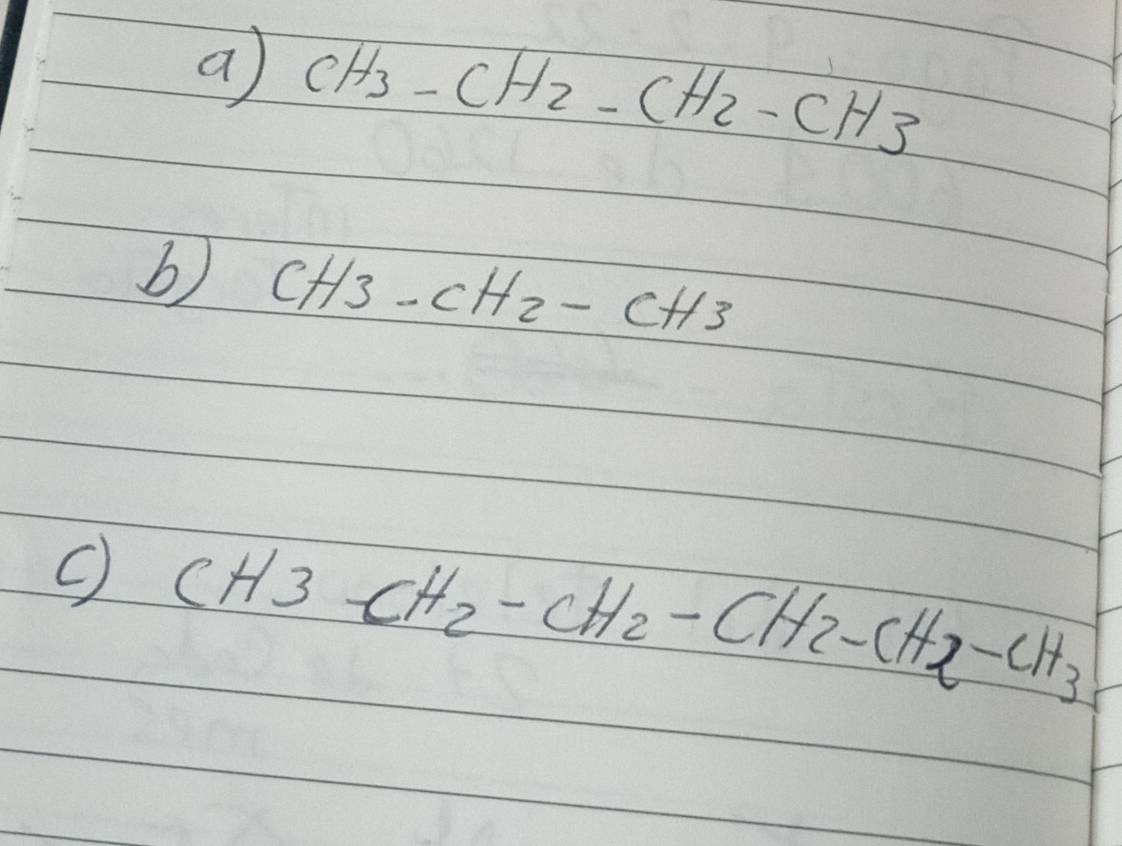 a) CH3 - CH2 - CH2 - CH3
b) CH3 - CH2 - CH3
c) CH3 - CH2 - CH2 - CH2 - CH2 - CH3